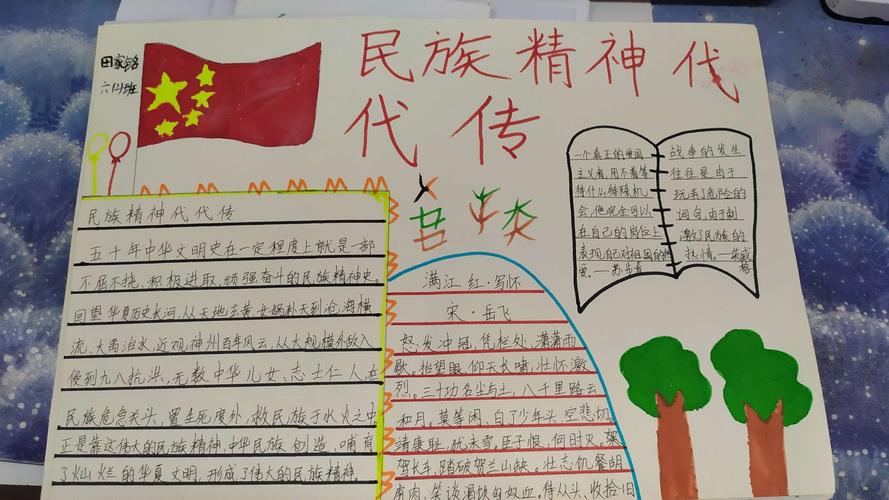 田家铭
六(2)班
民族精神代
代传
民族精神代代传
五千年中华文明史在一定程度上就是一部
不屈不挠、积极进取、顽强奋斗的民族精神史。
回望华夏历史长河,从天地玄黄、女娲补天到沧海横
流、大禹治水,近观神州百年风云,从大规模外敌入
侵到九八抗洪,无数中华儿女、志士仁人在
民族危急关头,置生死度外,救民族于水火之中
正是靠这伟大的民族精神,中华民族创造、哺育
了灿烂的华夏文明,形成了伟大的民族精神。
满江红·写怀
宋·岳飞
怒发冲冠,凭栏处、潇潇雨
歇。抬望眼,仰天长啸,壮怀激
烈。三十功名尘与土,八千里路云
和月。莫等闲、白了少年头,空悲切。
靖康耻,犹未雪。臣子恨,何时灭。驾
驾长车,踏破贺兰山缺。壮志饥餐胡
虏肉,笑谈渴饮匈奴血。待从头、收拾旧
一个真正的爱国
主义者,用不着等
待什么特殊机
会,他完全可以
在自己的岗位上
表现自己对祖国的热
爱。——苏步青
战争的发生
往往是由于
玩弄了危险的
词句,由于刺
激了民族的
热情。——英威
格